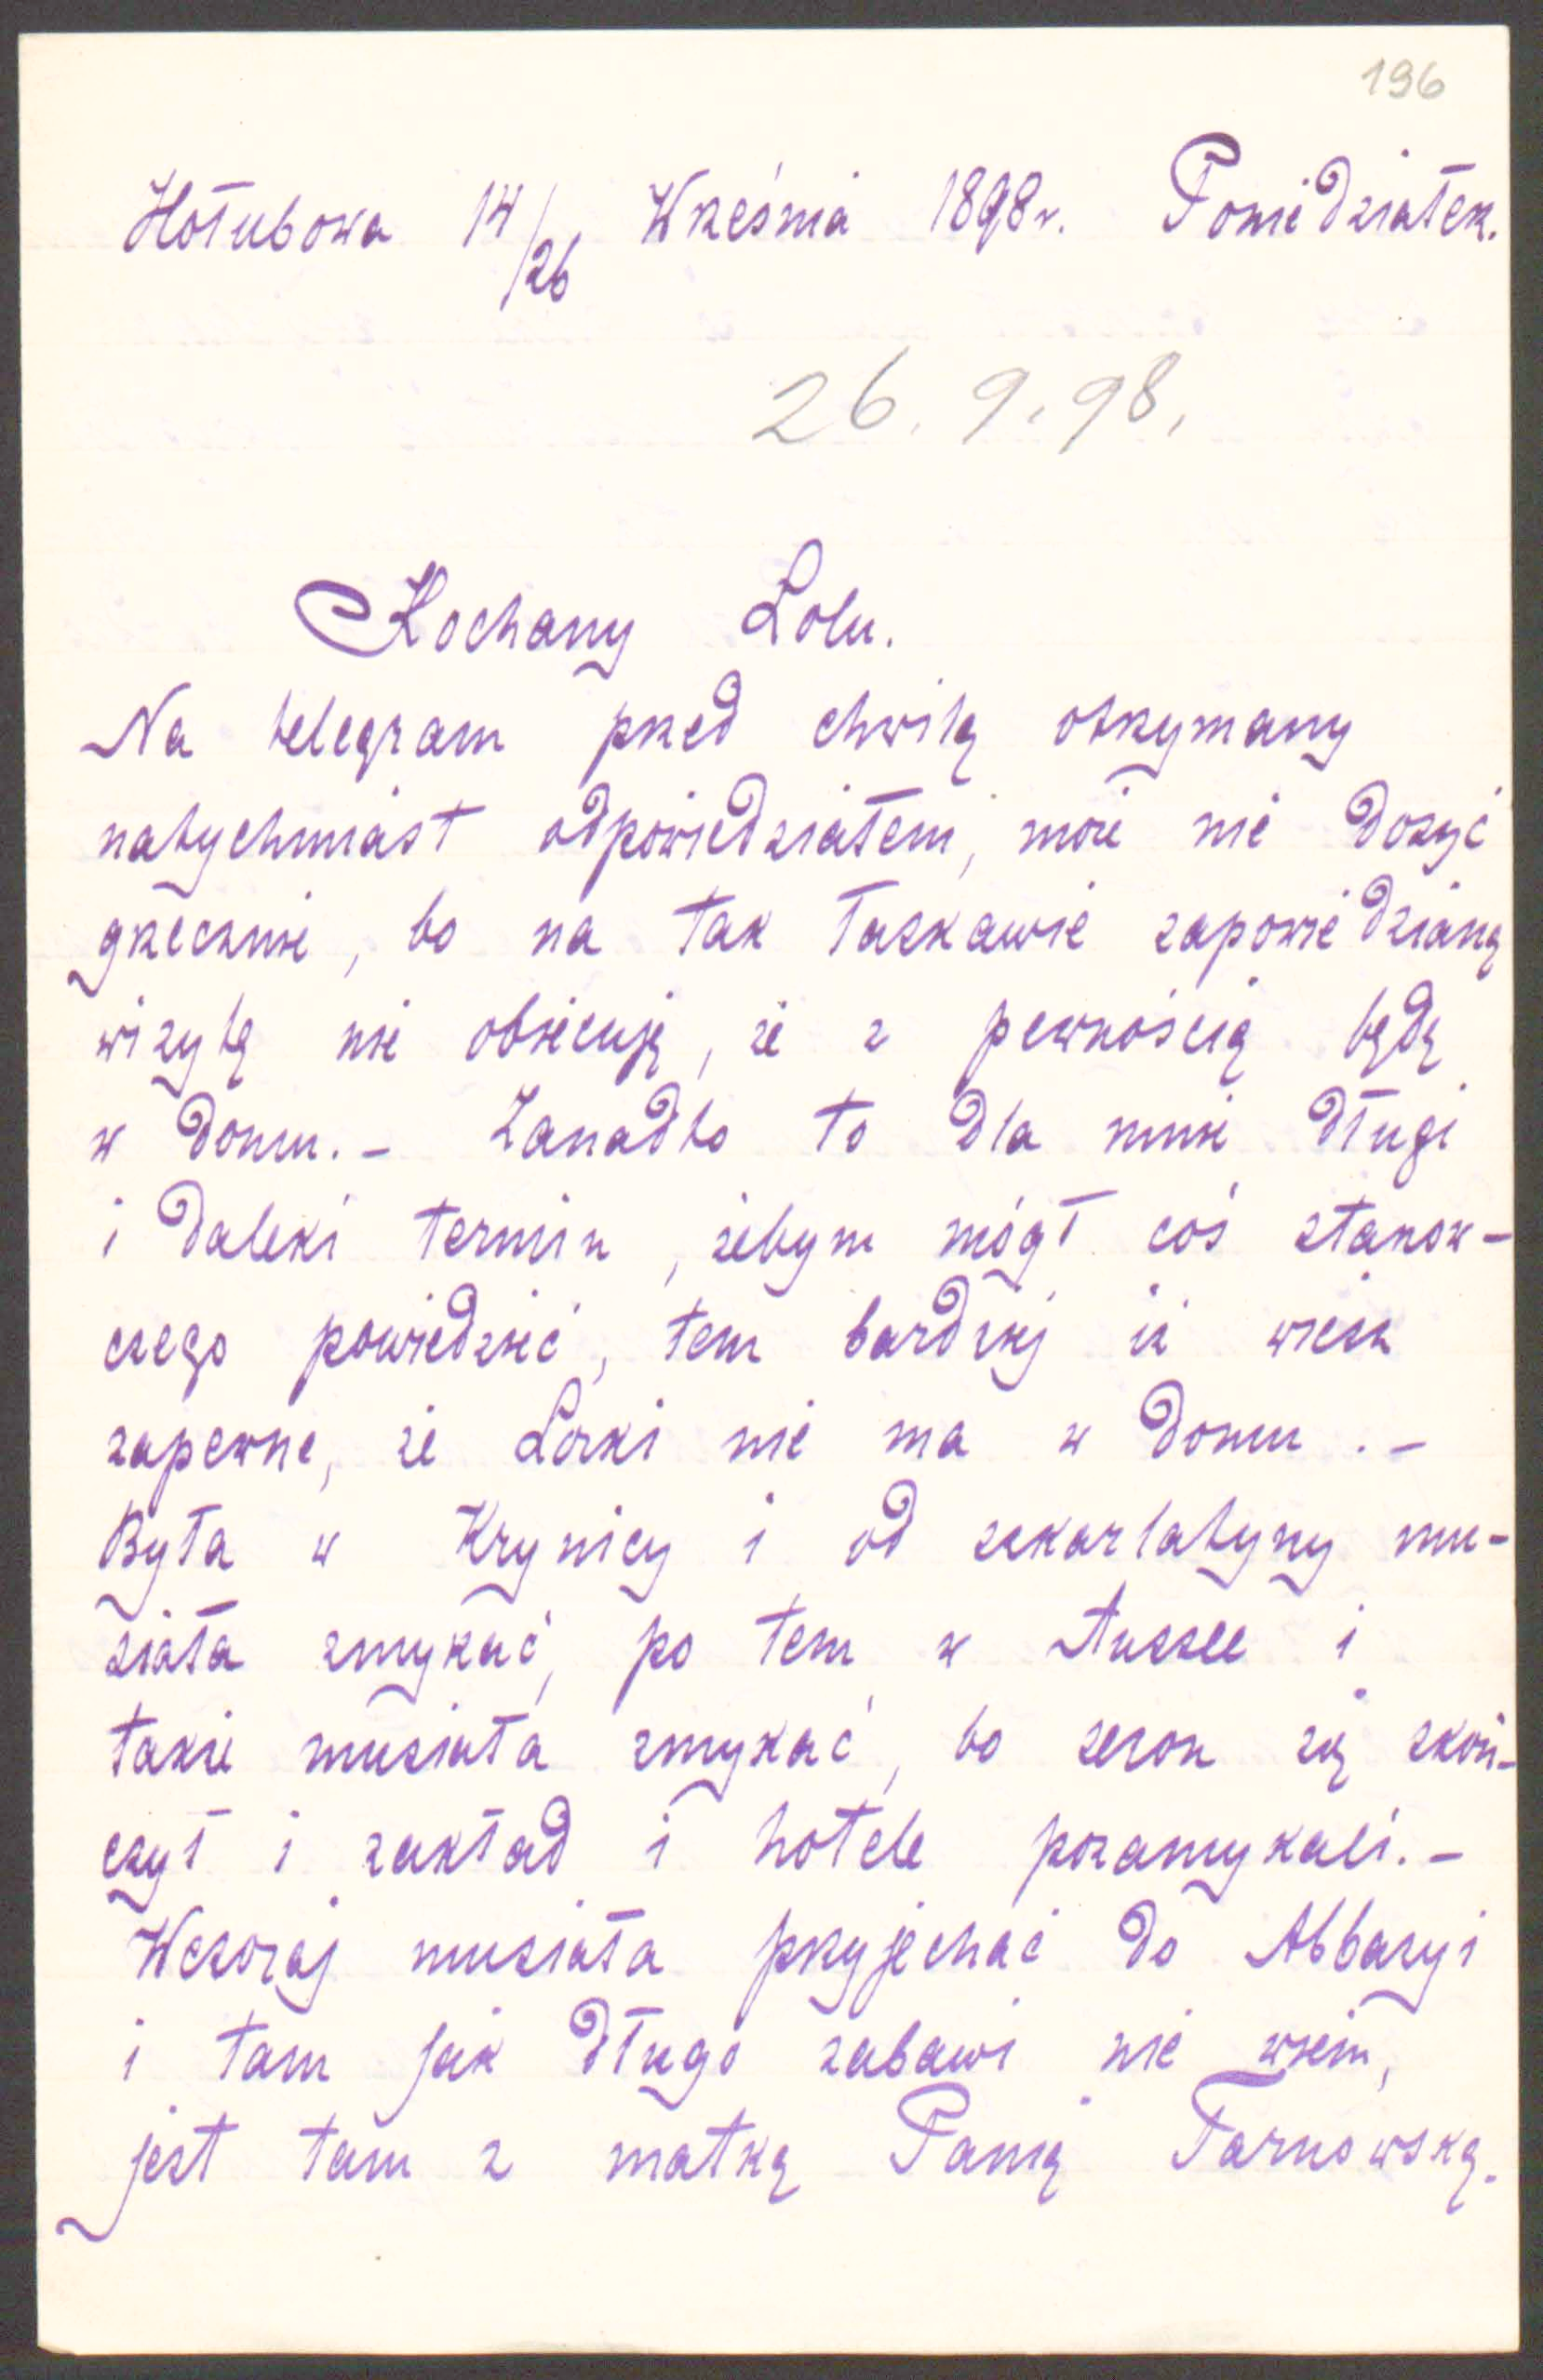 196
Hołubowa 14/26 Września 1898 r. Poniedziałek.
26. 9. 98,
Kochany Lolu.
Na telegram przed chwilą otrzymany
natychmiast odpowiedziałem, może nie dosyć
grzecznie, bo na tak łaskawie zapowiedzianą
wizytę nie obiecuję, że z pewnością będę
w domu. - Zanadto to dla mnie długi
i daleki termin, żebym mógł coś stanow-
czego powiedzieć, tem bardziej iż wiesz
zapewne, że Lorki nie ma w domu. -
Była w Krynicy i od szkarlatyny mu-
siała zmykać, po tem w Aussee i
także musiała zmykać, bo sezon się skoń-
czył i zakład i hotele pozamykali. -
Wczoraj musiała przyjechać do Abbazyi
i tam jak długo zabawi nie wiem,
jest tam z matką Panią Tarnowską.